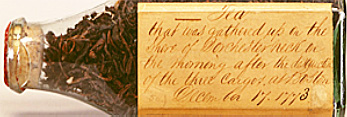 Tea
that was gathered up on the
Shore of Dorchester Neck on
the morning after the destruction
of the three Cargos at Boston
December 17, 1773